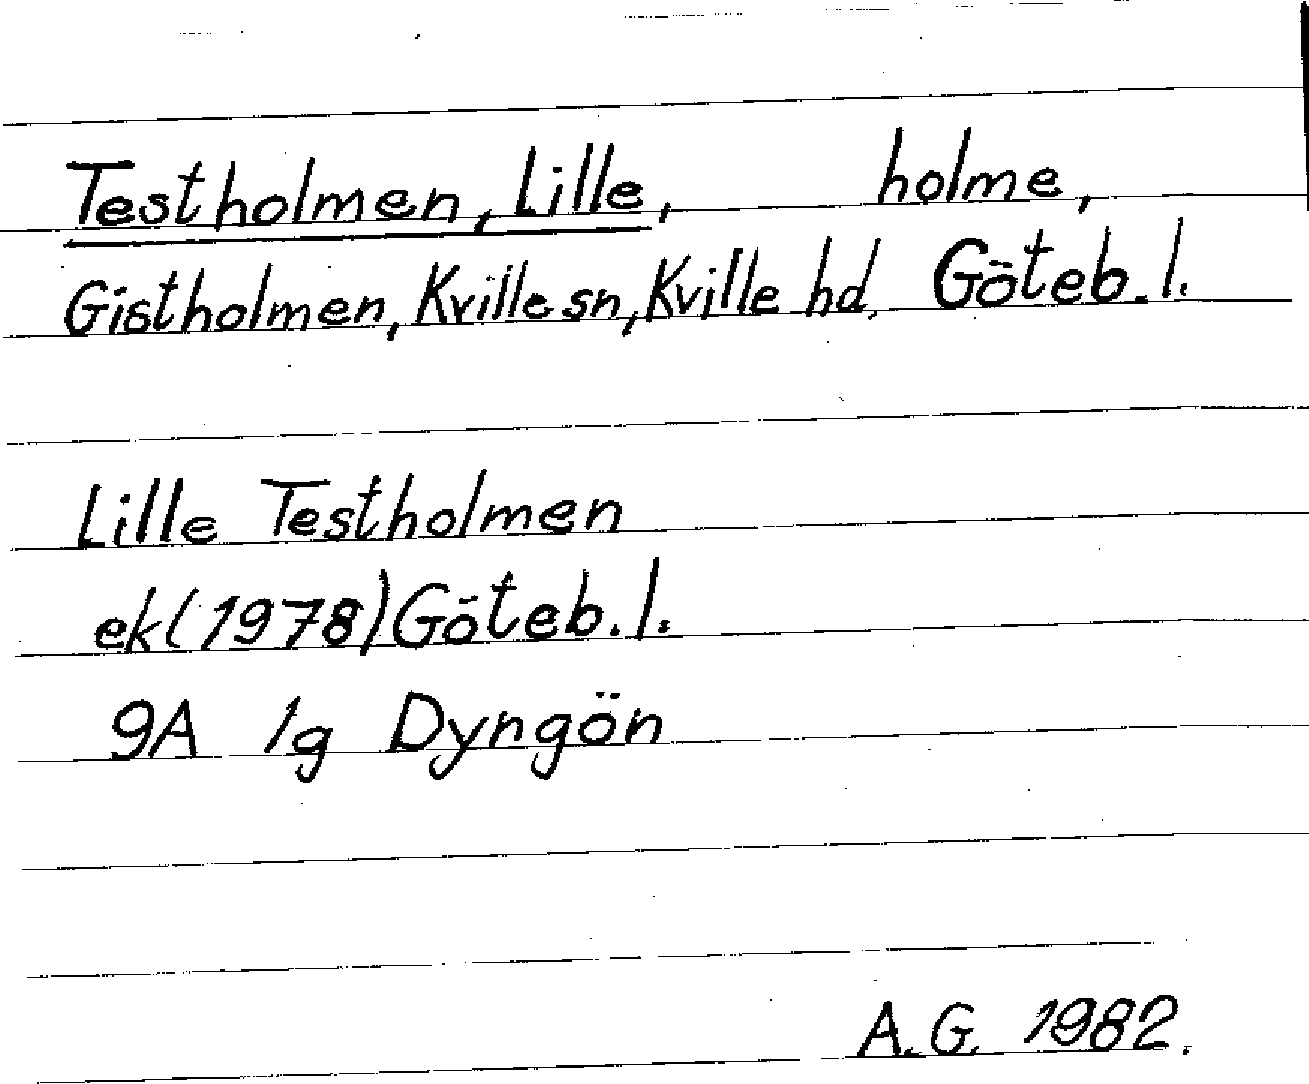 Testholmen, Lille, holme,
Gistholmen, Kville sn, Kville hd, Göteb. l.
Lille Testholmen
ek (1978) Göteb. l.
9A 1g Dyngön
A.G. 1982.